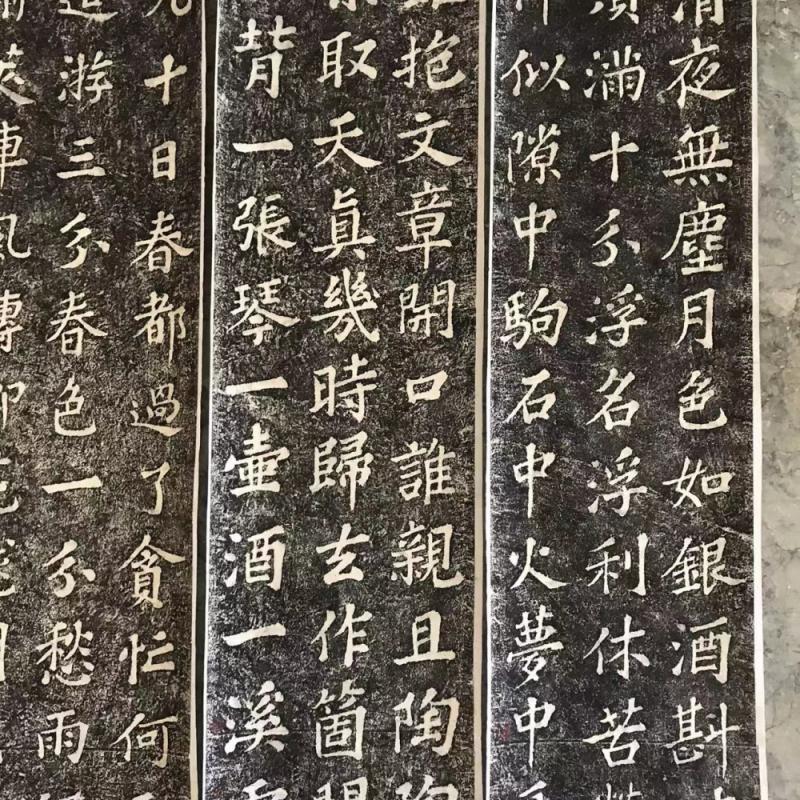 清夜無塵月色如銀酒斟
須滿十分浮名浮利休苦
似隙中駒石中火夢中
抱文章開口誰親且陶
取天真幾時歸去作箇
背一張琴一壺酒一溪
九十日春都過了貪忙何
追游三分春色一分愁雨